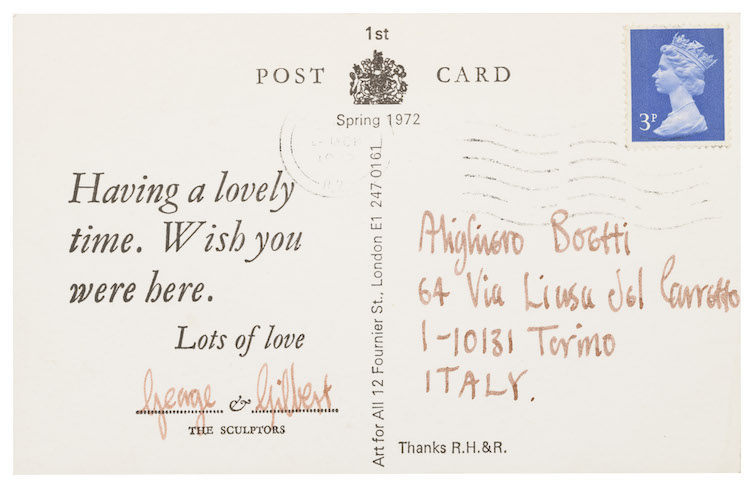 1st
POST CARD
Spring 1972
3P
Having a lovely
time. Wish you
were here.
Lots of love
George & Gilbert
THE SCULPTORS
Art for All 12 Fournier St., London E1 247 0161
Alighiero Boetti
64 Via Liusa del Carretto
I-10131 Torino
ITALY.
Thanks R.H.&R.